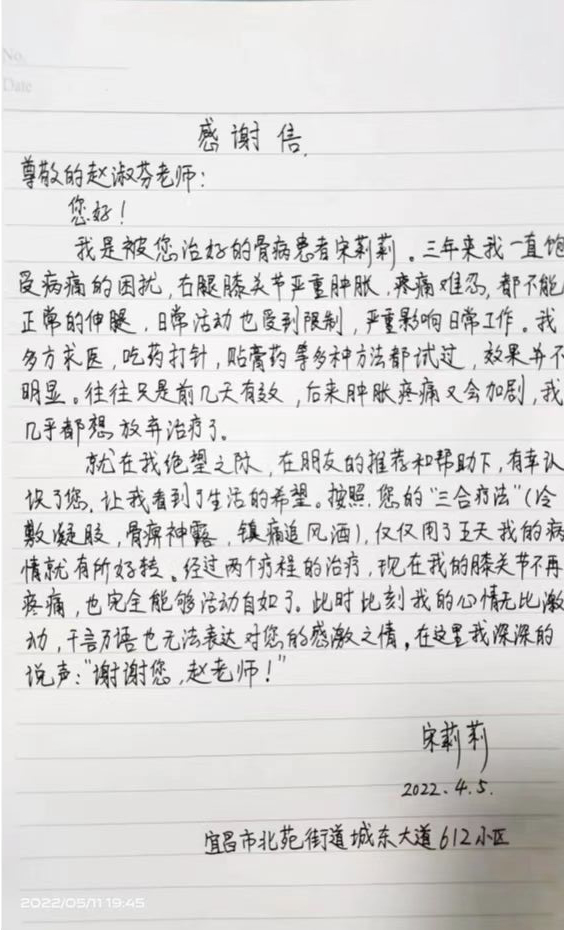 No.
Date
感谢信.
尊敬的赵淑芬老师:
您好!
我是被您治好的骨病患者宋莉莉。三年来我一直饱
受病痛的困扰,右腿膝关节严重肿胀,疼痛难忍,都不能
正常的伸腿,日常活动也受到限制,严重影响日常工作。我
多方求医,吃药打针,贴膏药等多种方法都试过,效果并不
明显。往往只是前几天有效,后来肿胀疼痛又会加剧,我
几乎都想放弃治疗了。
就在我绝望之际,在朋友的推荐和帮助下,有幸认
识了您,让我看到了生活的希望。按照您的"三合疗法"(冷
敷凝胶,骨痹神露,镇痛追风酒),仅仅用了五天我的病
情就有所好转。经过两个疗程的治疗,现在我的膝关节不再
疼痛,也完全能够活动自如了。此时此刻我的心情无比激
动,千言万语也无法表达对您的感激之情,在这里我深深的
说声:"谢谢您,赵老师!"
宋莉莉
2022.4.5.
宜昌市北苑街道城东大道612小区
2022/05/11 19:45